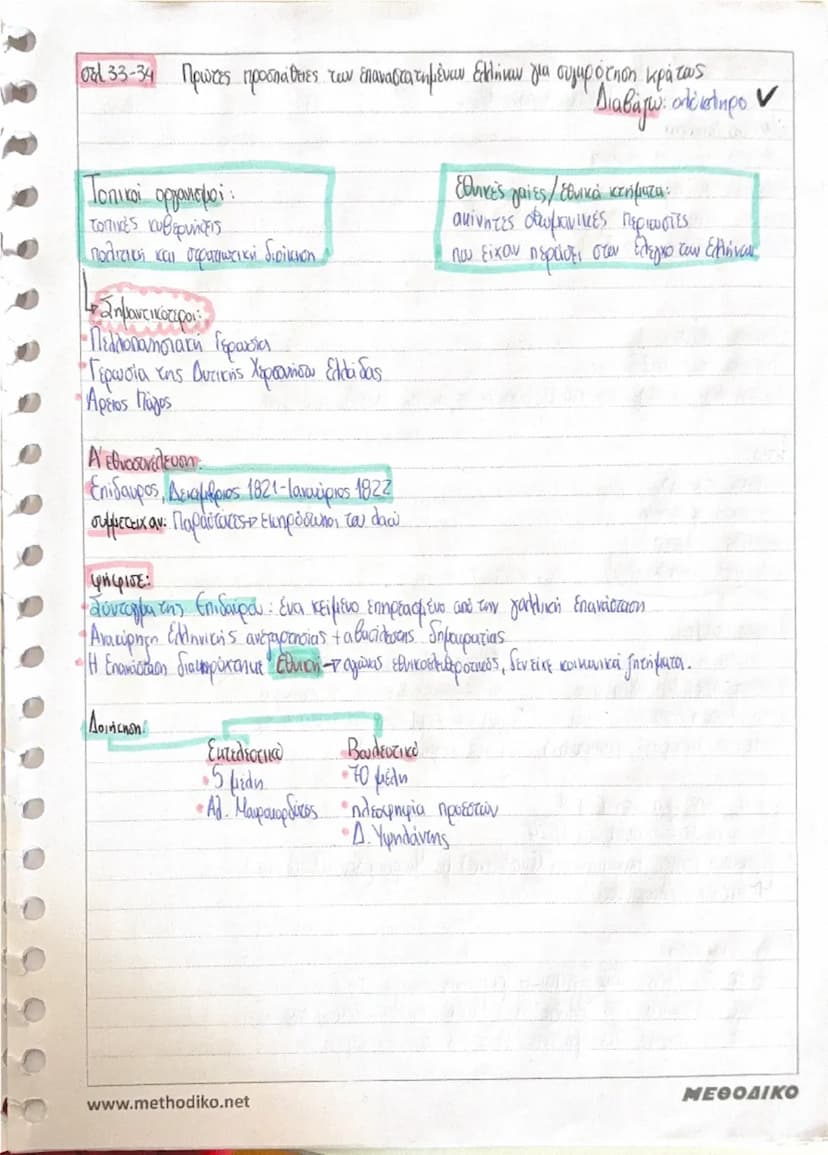 σελ 33-34 Πρώτες προσπάθειες των επαναστατημένων Ελλήνων για συγκρότηση κράτους
Διαβάζω: ολόκληρο ✓
Τοπικοί οργανισμοί:
τοπικές κυβερνήσεις
πολιτική και στρατιωτική διοίκηση
Εθνικές γαίες/Εθνικά κτήματα:
ακίνητες οθωμανικές περιουσίες
που είχαν περάσει στον έλεγχο των Ελλήνων
↳ Σημαντικότεροι:
• Πελοποννησιακή Γερουσία
• Γερουσία της Δυτικής Χέρσου Ελλάδας
• Άρειος Πάγος
Α' εθνοσυνέλευση:
Επίδαυρος, Δεκέμβριος 1821-Ιανουάριος 1822
συμμετείχαν: Παραστάτες → εκπρόσωποι του λαού
ψήφισε:
• Σύνταγμα της Επιδαύρου: ένα κείμενο επηρεασμένο από την γαλλική επανάσταση
• Ανακύρηξη Ελληνικής ανεξαρτησίας + αβασίλευτης δημοκρατίας
• Η Επανάσταση διακηρύχτηκε Εθνική → αγώνας εθνικοαπελευθερωτικός, δεν είχε κοινωνικά ζητήματα.
Διοίκηση:
Εκτελεστικό
• 5 μέλη
• Αλ. Μαυροκορδάτος
Βουλευτικό
• 70 μέλη
• πλειοψηφία προεστών
• Δ. Υψηλάντης
www.methodiko.net
ΜΕΘΟΔΙΚΟ